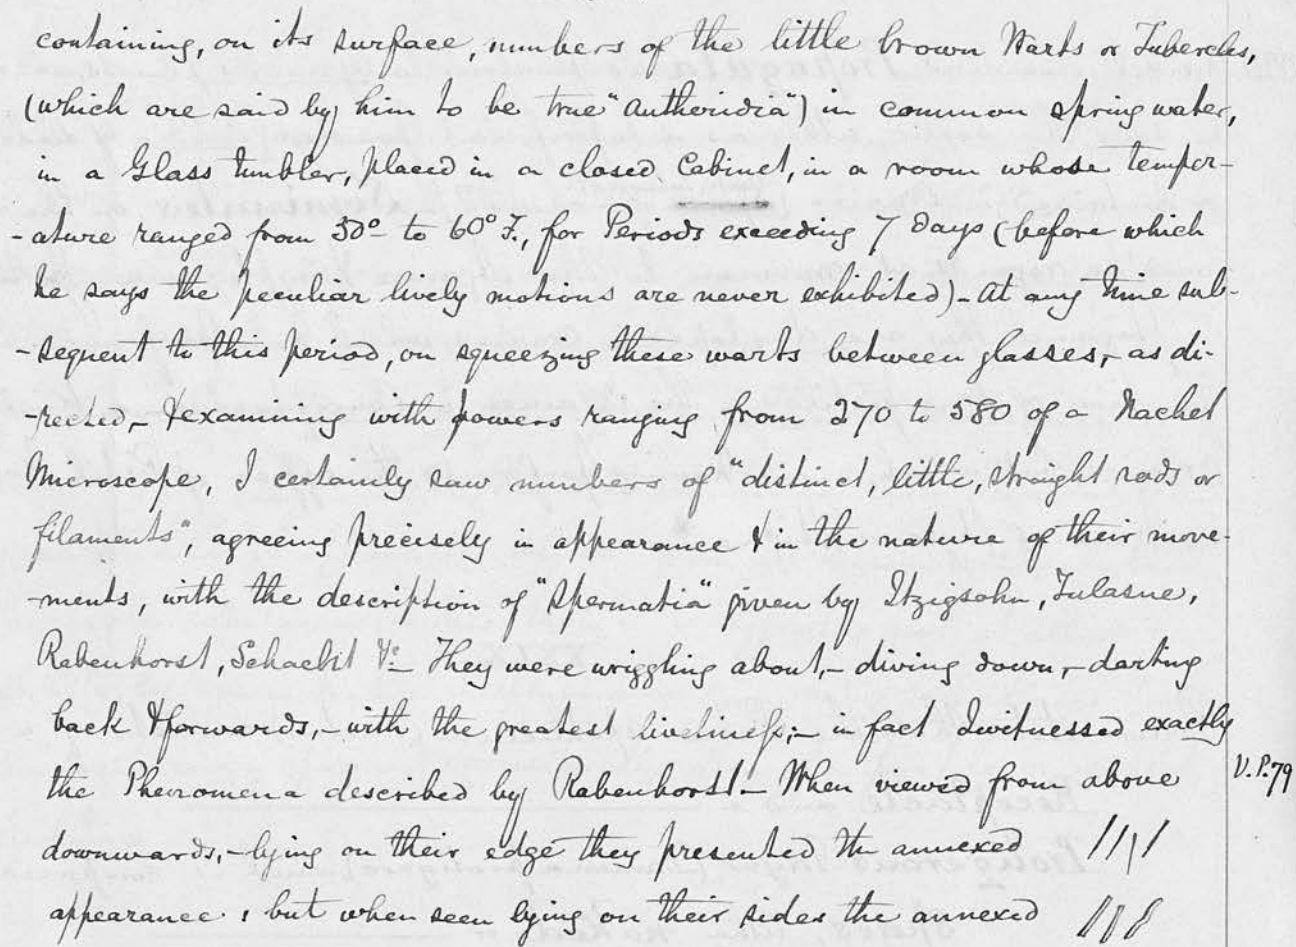 containing, on its surface, numbers of the little brown Warts or Tubercles,
(which are said by him to be true "antheridia") in common spring water,
in a Glass tumbler, placed in a closed Cabinet, in a room whose temper-
-ature ranged from 30° to 60° F., for Periods exceeding 7 days (before which
he says the peculiar lively motions are never exhibited) - At any time sub-
-sequent to this period, on squeezing these warts between glasses, - as di-
-rected, - & examining with powers ranging from 270 to 580 of a Nachet
Microscope, I certainly saw numbers of "distinct, little, straight rods or
filaments", agreeing precisely in appearance & in the nature of their move-
-ments, with the description of "Spermatia" given by Itzigsohn, Tulasne,
Rabenhorst, Schacht &c - They were wriggling about, - diving down, - darting
back & forwards, - with the greatest liveliness; - in fact I witnessed exactly
the Phenomena described by Rabenhorst - When viewed from above
V.P. 79
downwards, - lying on their edge they presented the annexed
appearance, but when seen lying on their sides the annexed